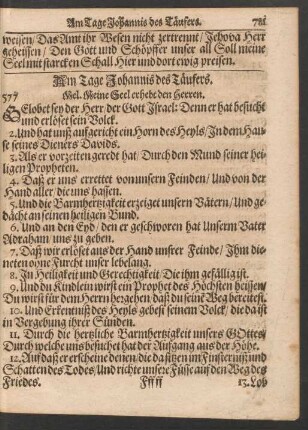 Am Tage Johannis des Täufers. 781
weisen/Das Amt ihr Wesen nicht zertrennt/Jehova Herr
geheissen/ Den Gott und Schöpffer unser all Soll meine
Seel mit starcken Schall Hier und dort ewig preisen.
Am Tage Johannis des Täufers.
577 Gel. Meine Seel erhebt den Herren.
Gelobet sey der Herr der Gott Israel: Denn er hat besucht
und erlöset sein Volck.
2. Und hat unß aufgericht ein Horn des Heyls/ In dem Hau-
se seines Dieners Davids.
3. Als er vorzeiten geredt hat/ Durch den Mund seiner hei-
ligen Propheten.
4. Daß er uns errettet von unsern Feinden/ Und von der
Hand aller/ die uns hassen.
5. Und die Barmhertzigkeit erzeiget unsern Vätern/ Und ge-
dächt an seinen heiligen Bund.
6. Und an den Eyd/ den er geschworen hat Unserm Vater
Abraham uns zu geben.
7. Daß wir erlöset aus der Hand unsrer Feinde/ Ihm die-
neten ohne Furcht unser lebelang.
8. In Heiligkeit und Gerechtigkeit/ Die ihm gefällig ist.
9. Und du Kindlein wirst ein Prophet des Höchsten heissen/
Du wirst für dem Herrn hergehen/ daß du seine Weg bereitest.
10. Und Erkentnuß des Heyls gebest seinem Volck/ die da ist
in Vergebung ihrer Sünden.
11. Durch die hertzliche Barmhertzigkeit unsers GOttes/
Durch welche uns besuchet hat der Aufgang aus der Höhe.
12. Auf daß er erscheine denen/ die da sitzen im Finsternüß und
Schatten des Todes/ Und richte unsere Füsse auf den Weg des
Friedes. Fff ff 13. Lob